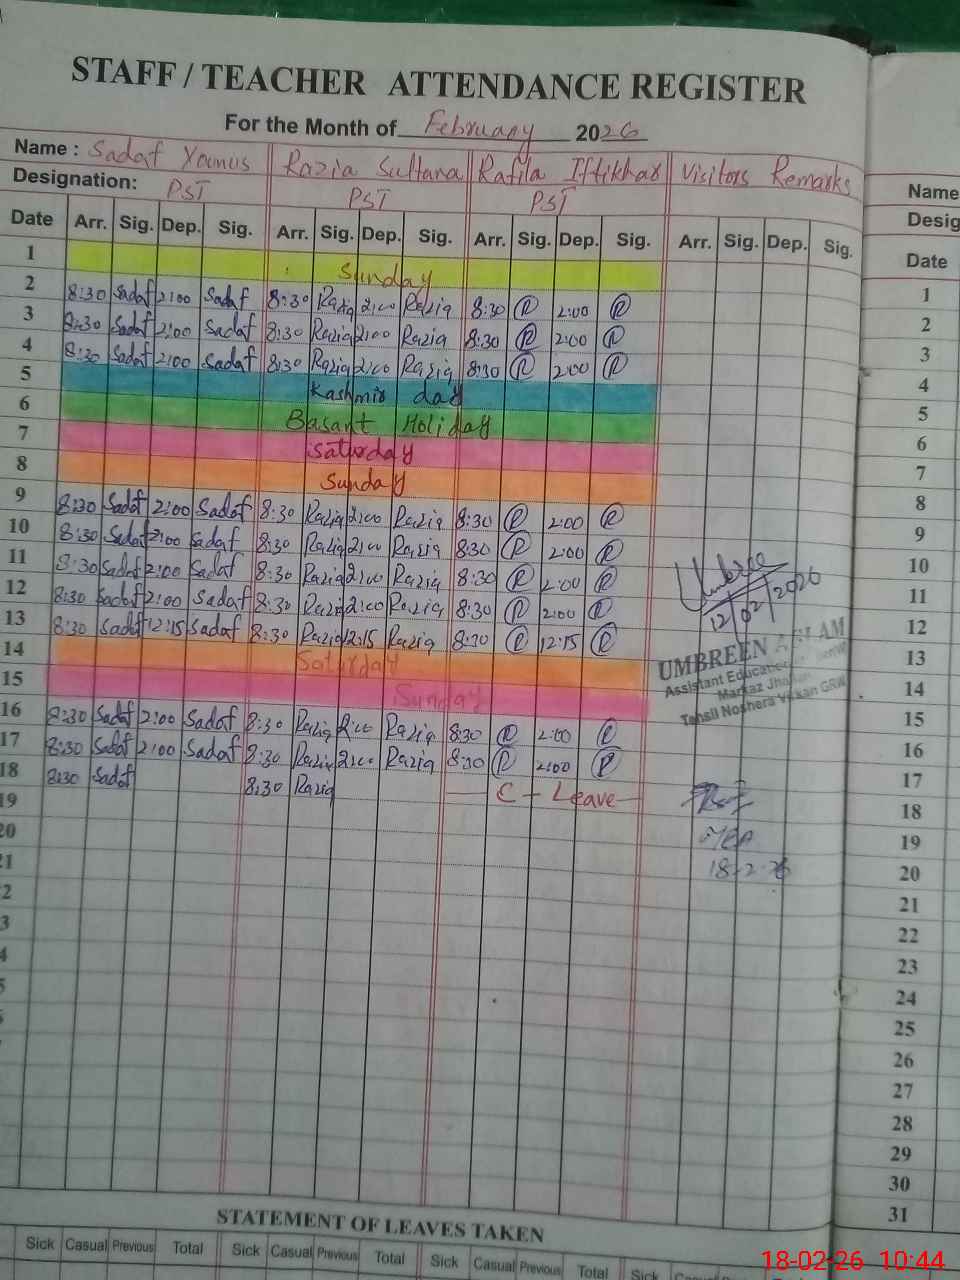 STAFF / TEACHER ATTENDANCE REGISTER
For the Month of February 2026
Name : Sadaf Younus Razia Sultana Rafila Iftikhar Visitors Remarks
Designation: PST PST PST
Date Arr. Sig. Dep. Sig. Arr. Sig. Dep. Sig. Arr. Sig. Dep. Sig. Arr. Sig. Dep. Sig.
1 Sunday
2 8:30 Sadaf 2:00 Sadaf 8:30 Razia 2:00 Razia 8:30 R 2:00 R
3 8:30 Sadaf 2:00 Sadaf 8:30 Razia 2:00 Razia 8:30 R 2:00 R
4 8:30 Sadaf 2:00 Sadaf 8:30 Razia 2:00 Razia 8:30 R 2:00 R
5 Kashmir day
6 Basant Holiday
7 Saturday
8 Sunday
9 8:30 Sadaf 2:00 Sadaf 8:30 Razia 2:00 Razia 8:30 R 2:00 R
10 8:30 Sadaf 2:00 Sadaf 8:30 Razia 2:00 Razia 8:30 R 2:00 R
11 8:30 Sadaf 2:00 Sadaf 8:30 Razia 2:00 Razia 8:30 R 2:00 R
12 8:30 Sadaf 2:00 Sadaf 8:30 Razia 2:00 Razia 8:30 R 2:00 R
13 8:30 Sadaf 12:15 Sadaf 8:30 Razia 12:15 Razia 8:30 R 12:15 R
14 Saturday
15 Sunday
16 8:30 Sadaf 2:00 Sadaf 8:30 Razia 2:00 Razia 8:30 R 2:00 R
17 8:30 Sadaf 2:00 Sadaf 8:30 Razia 2:00 Razia 8:30 R 2:00 R
18 8:30 Sadaf 8:30 Razia C - Leave
19
20
21
Umbree
12/02/2026
UMBREEN
Assistant Education
Markaz
Tahsil Noshera Virkan GRW
MEA
18-2-26
STATEMENT OF LEAVES TAKEN
Sick Casual Previous Total Sick Casual Previous Total Sick Casual Previous Total Sick
Name
Desig
Date
1
2
3
4
5
6
7
8
9
10
11
12
13
14
15
16
17
18
19
20
21
22
23
24
25
26
27
28
29
30
31
18-02-26 10:44